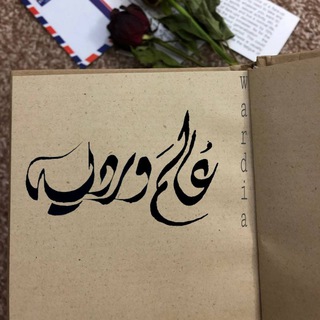 عالم وردية
Wardia